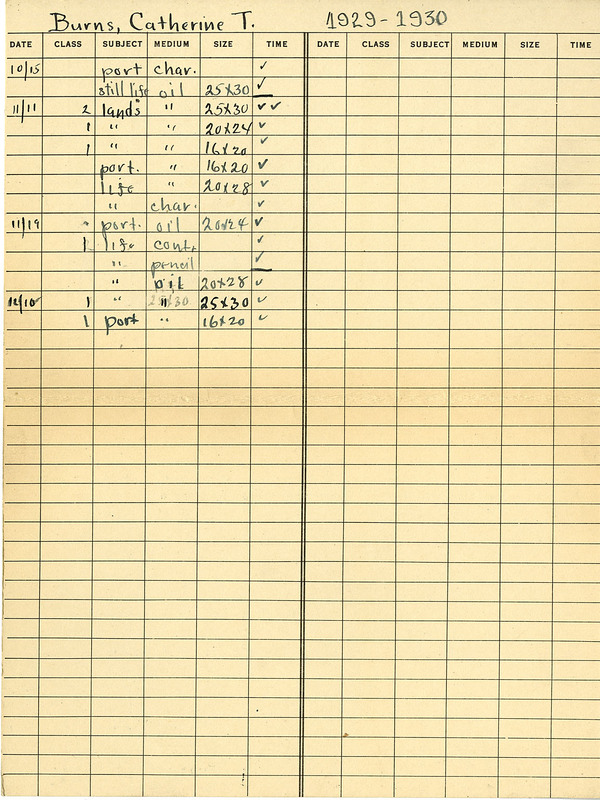 Burns, Catherine T. 1929-1930
DATE CLASS SUBJECT MEDIUM SIZE TIME DATE CLASS SUBJECT MEDIUM SIZE TIME
10/15 port char. ✓
still life oil 25x30 ✓
11/11 2 lands " 25x30 ✓✓
1 " " 20x24 ✓
1 " " 16x20 ✓
port. " 16x20 ✓
life " 20x28 ✓
" char. ✓
11/19 port. oil 20x24 ✓
1 life cont. ✓
" pencil ✓
" oil 20x28 ✓
12/10 1 " " 25x30 ✓
1 port " 16x20 ✓